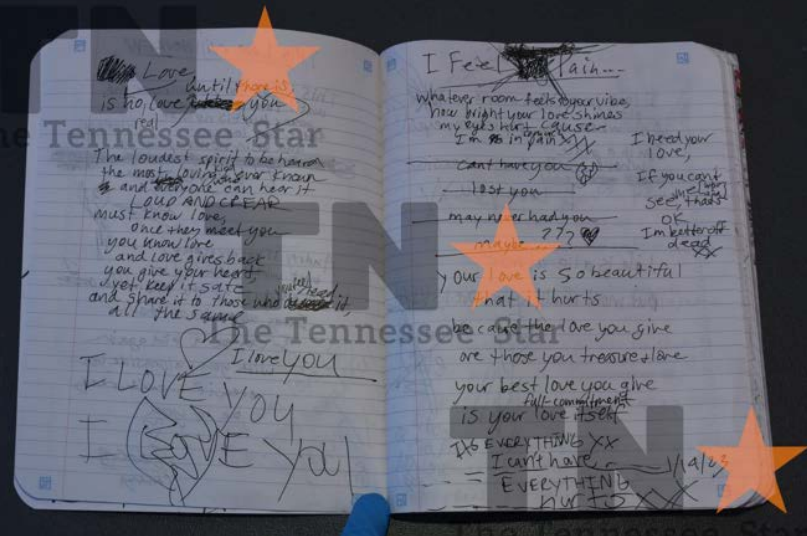 Love
until there is,
is no love you
real
The loudest spirit to be heard
the most loving ever known
& and everyone can hear it
LOUD AND CLEAR
must know love,
once they meet you
you know love
and love gives back
you give your heart,
yet keep it safe
and share it to those who need it,
all the same
I love you
I LOVE YOU
I LOVE YOU
I Feel Pain...
whatever room feels your vibe,
how bright your love shines
my eyes hurt cause
I'm in pain XX
can't have you
lost you
may never had you
maybe...???
I need your
love,
If you can't
see that
OK
I'm better off
dead
XX
your love is so beautiful
that it hurts
because the love you give
are those you treasure + love
your best love you give
full-commitment
is your love itself
ITS EVERYTHING XX
I can't have 1/14/23
EVERYTHING
HURTS XX
TN
The Tennessee Star
TN
The Tennessee Star
TN
The Tennessee Star